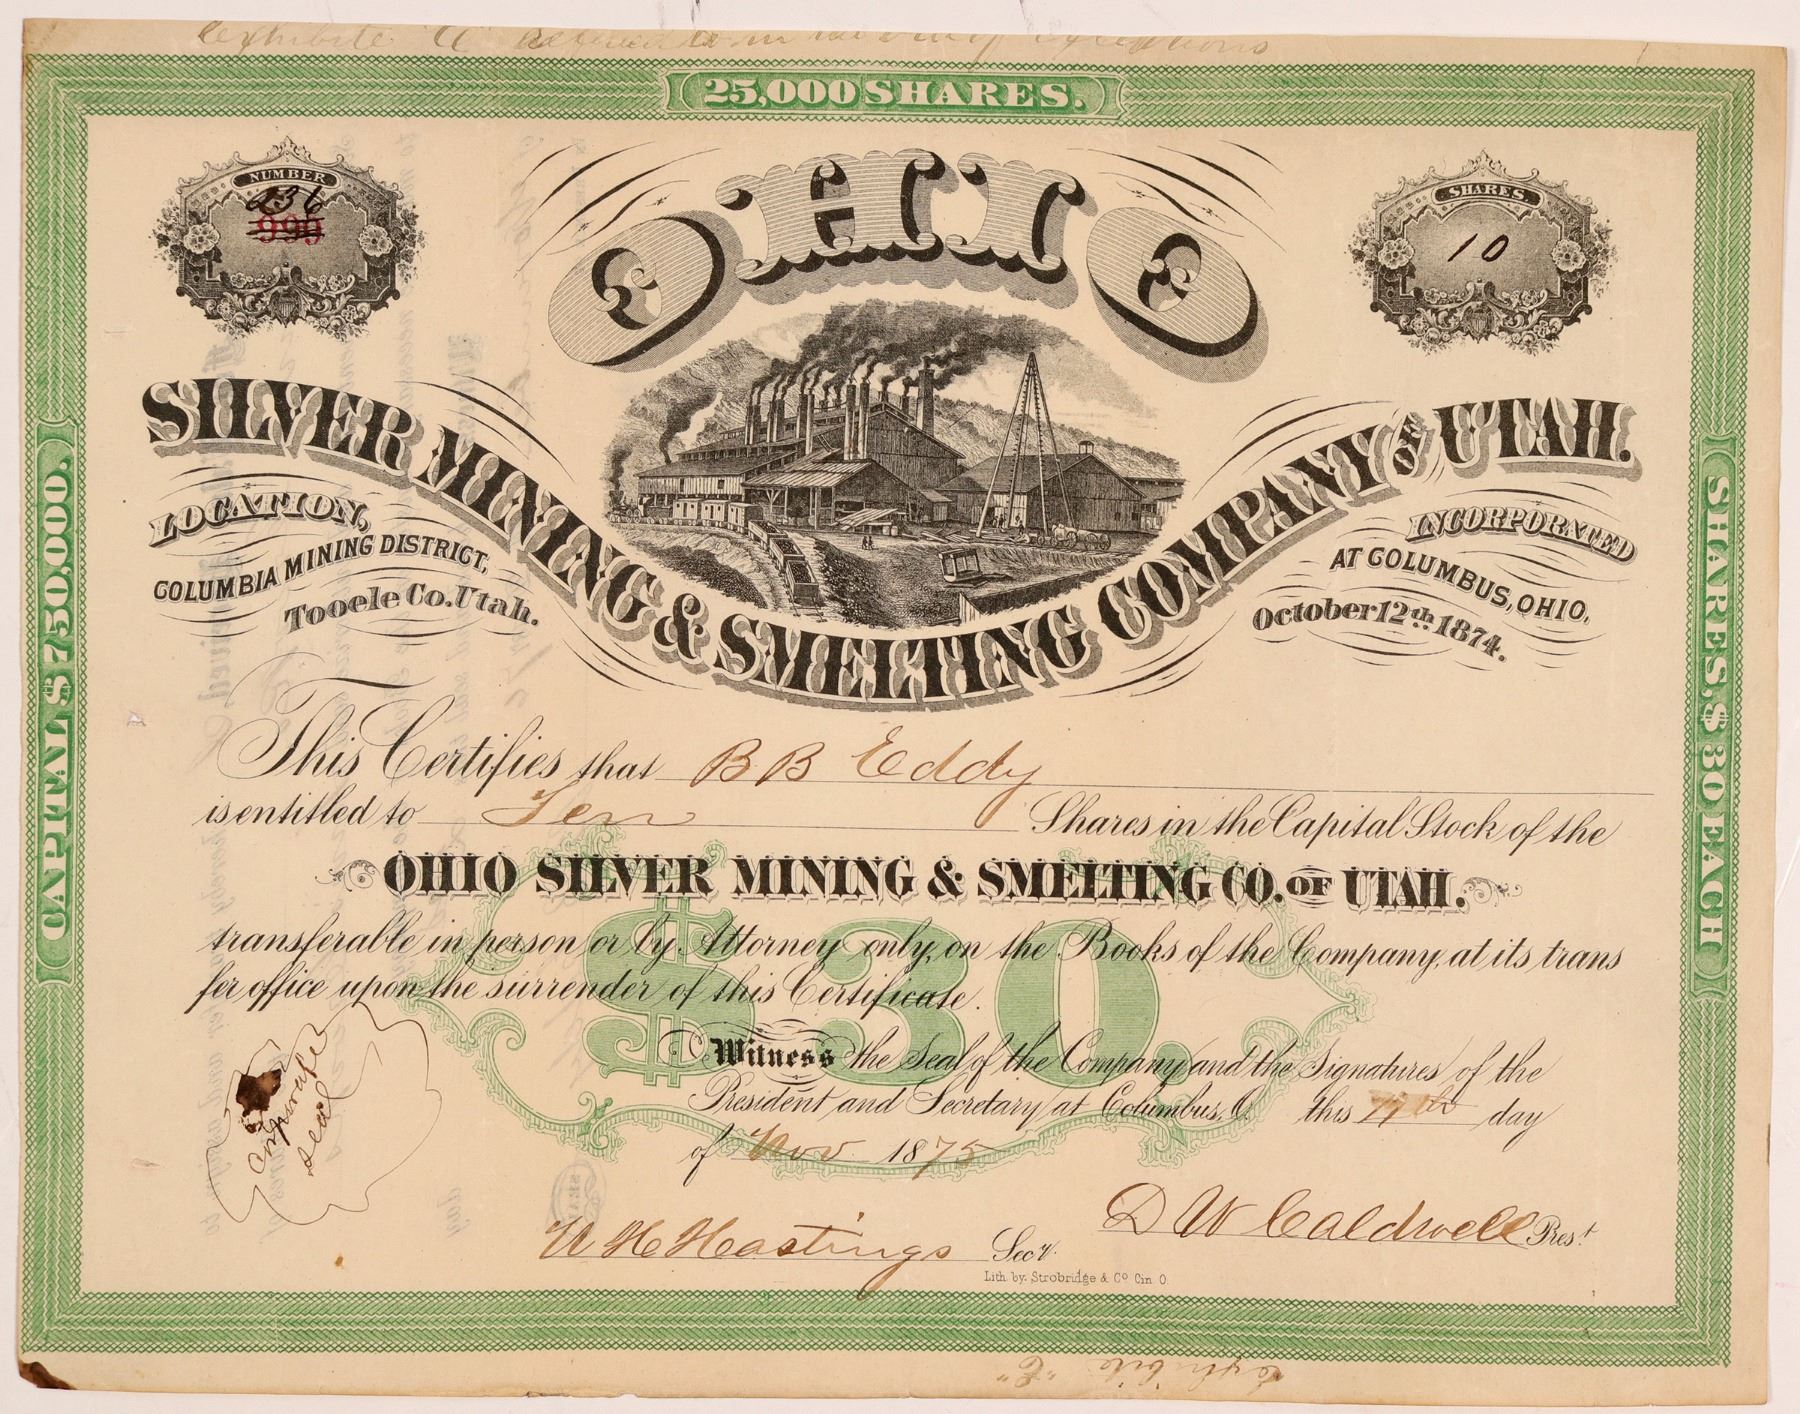 25,000 SHARES.
NUMBER
236
SHARES.
10
OHIO
SILVER MINING & SMELTING COMPANY OF UTAH.
LOCATION,
COLUMBIA MINING DISTRICT,
Tooele Co. Utah.
INCORPORATED
AT COLUMBUS, OHIO,
October 12th 1874.
CAPITAL $750,000.
SHARES, $30 EACH
This Certifies that B B Eddy
is entitled to Ten Shares in the Capital Stock of the
OHIO SILVER MINING & SMELTING CO. OF UTAH.
transferable in person or by Attorney only, on the Books of the Company, at its trans
fer office upon the surrender of this Certificate.
$30.
Witness the Seal of the Company and the Signatures of the
President and Secretary at Columbus, O. this day
of Nov 1875
seal
W H Hastings Secy.
D W Caldwell Prest.
Lith by. Strobridge & Co Cin O.